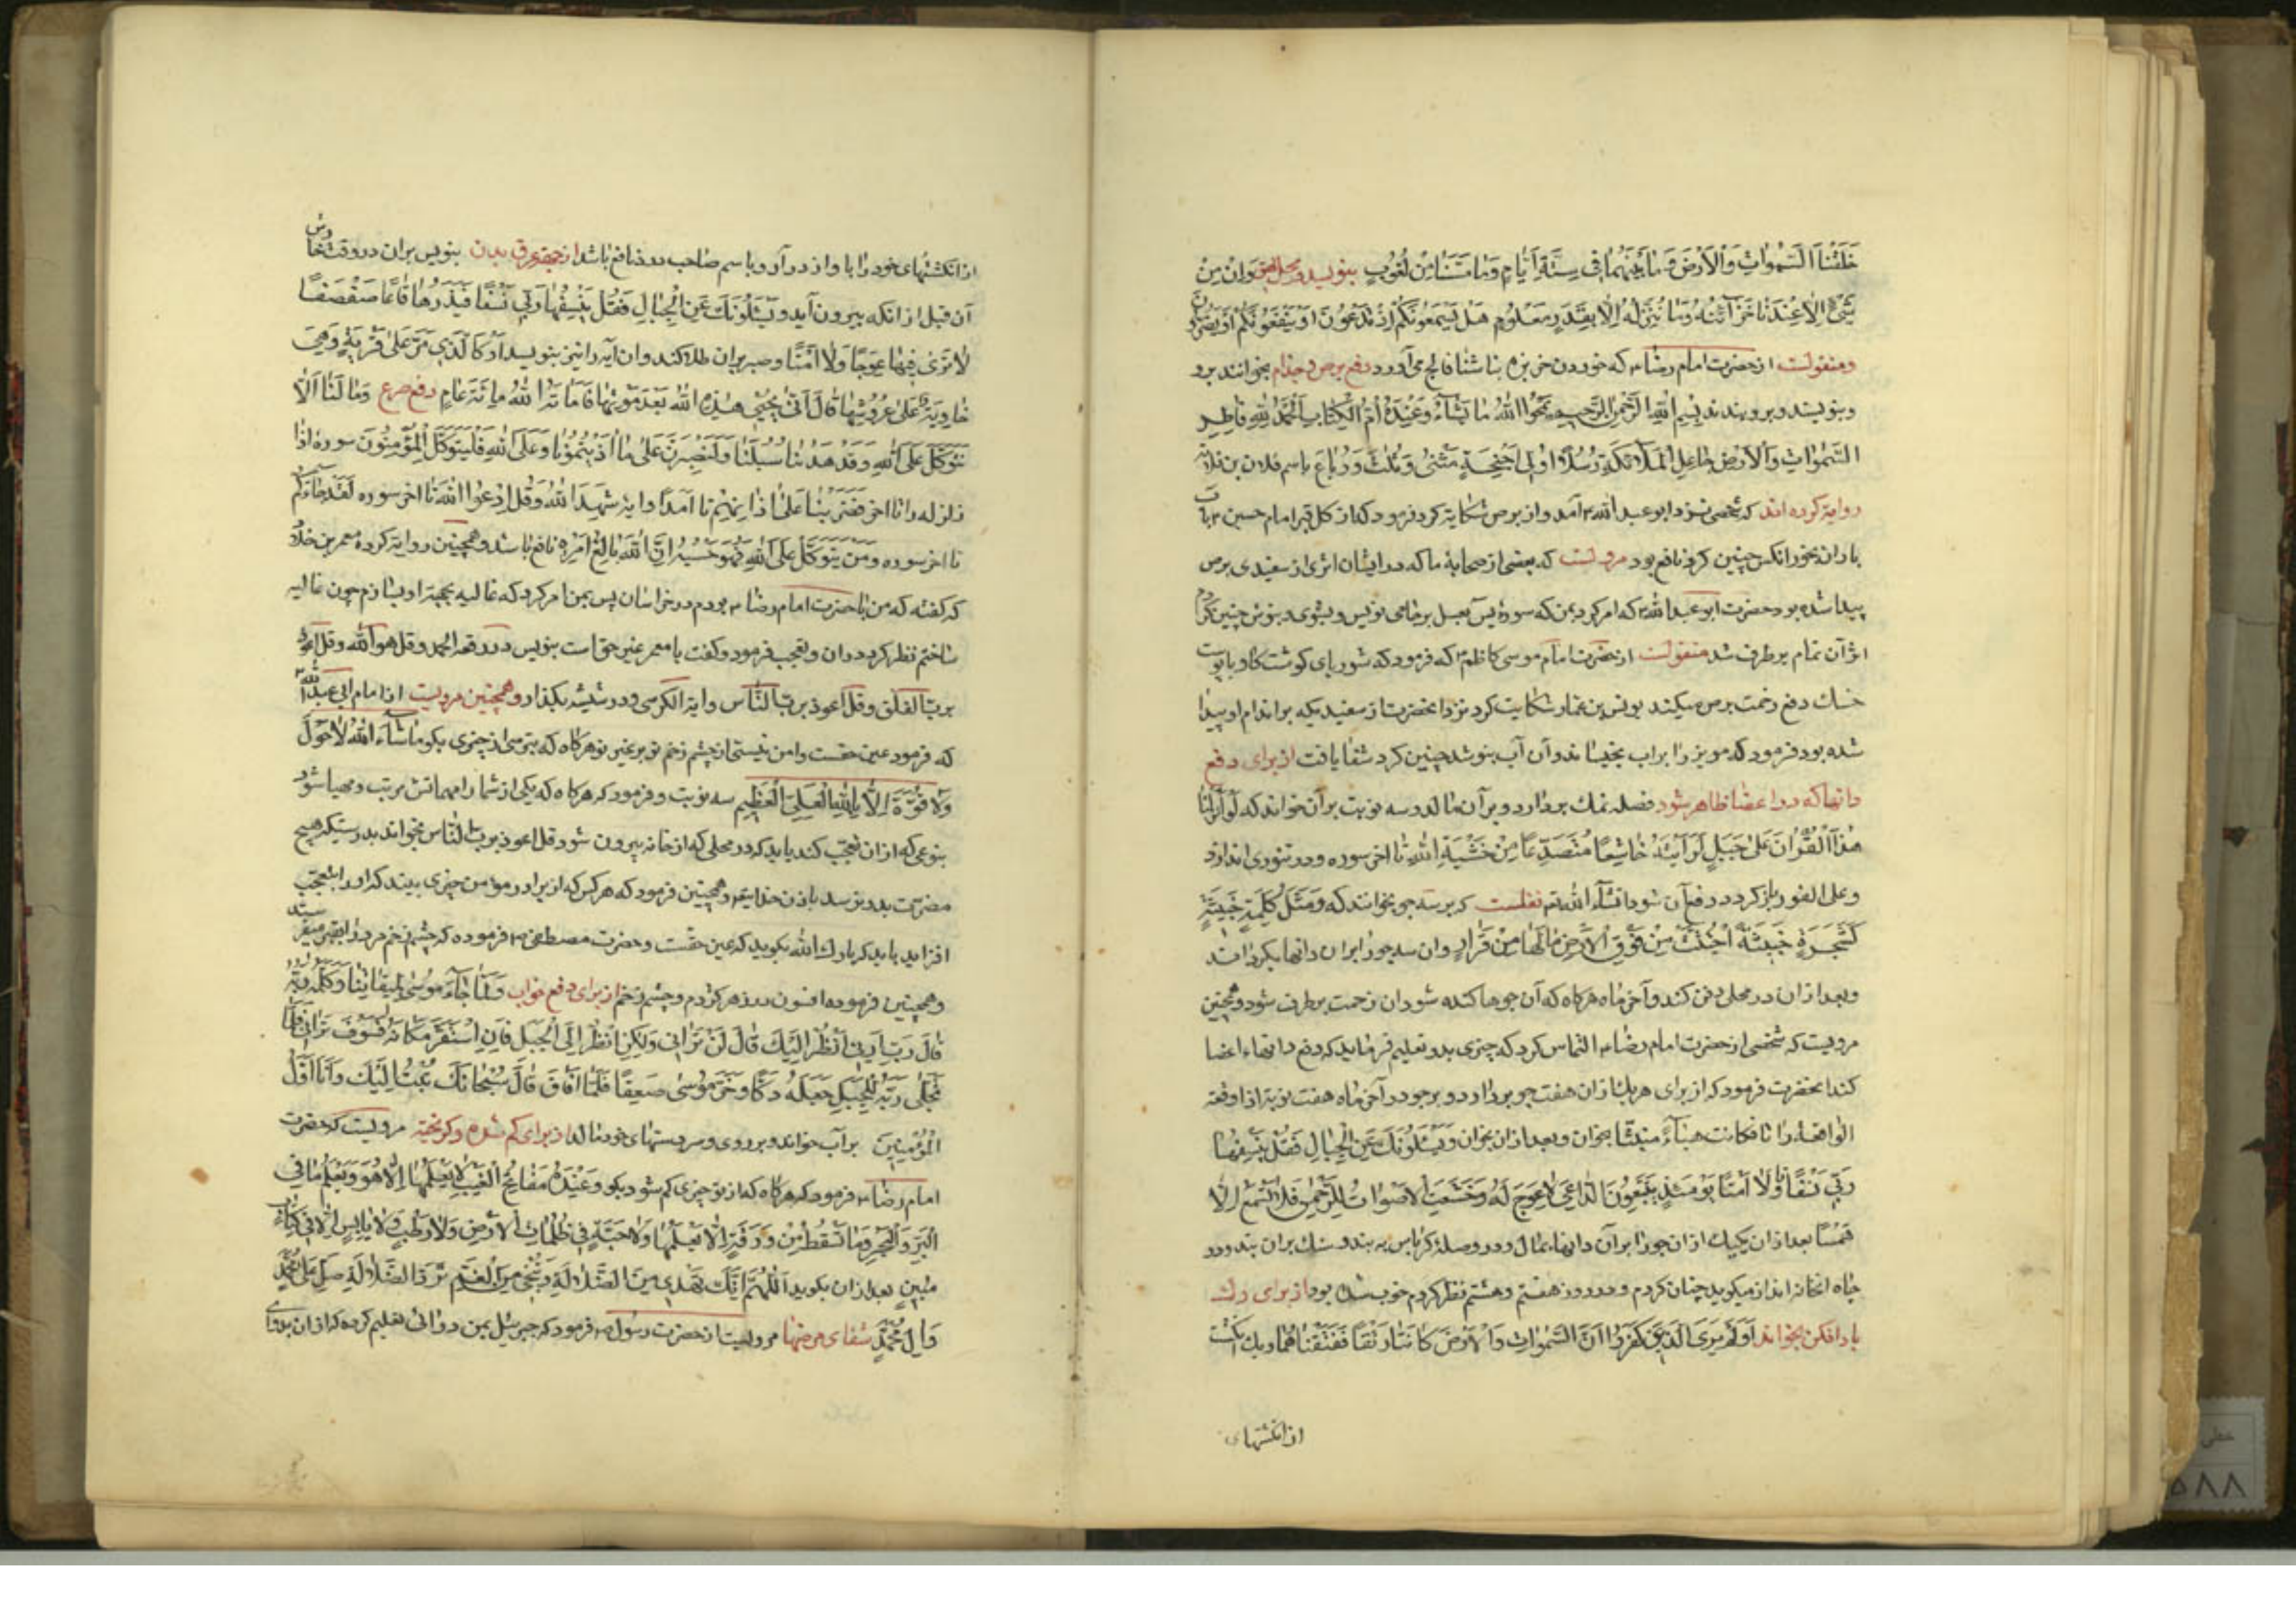 خَلَقْنَا السَّمٰوَاتِ وَالْاَرْضَ وَمَا بَيْنَهُمَا فِي سِتَّةِ اَيَّامٍ وَمَا مَسَّنَا مِنْ لُغُوبٍ بنویسد وَاِنْ مِنْ
شَيْءٍ اِلَّا عِنْدَنَا خَزَآئِنُهُ وَمَا نُنَزِّلُهُ اِلَّا بِقَدَرٍ مَعْلُومٍ هَلْ يَسْمَعُونَكُمْ اِذْ تَدْعُونَ اَوْ يَنْفَعُونَكُمْ اَوْ يَضُرُّونَ
ومنقولست از حضرت امام رضا که خوردن خربزه ناشتا فالج می آورد دفع برص و جذام بخوانند برو
وبنویسند و برو بندند بِسْمِ اللهِ الرَّحْمٰنِ الرَّحِيمِ يَمْحُوا اللهُ مَا يَشَآءُ وَعِنْدَهُ اُمُّ الْكِتَابِ اَلْحَمْدُ لِلّٰهِ فَاطِرِ
السَّمٰوَاتِ وَالْاَرْضِ جَاعِلِ الْمَلَآئِكَةِ رُسُلًا اُولِي اَجْنِحَةٍ مَثْنٰى وَثُلٰثَ وَرُبَاعَ باسم فلان بن فلانه
روایة کرده اند که شخصی نزد ابو عبد الله آمد و از برص شکایة کرد فرمود که از کل قبر امام حسین با آب
باران بخور انکس چنین کرد نافع بود مرویست که بعضی از صحابۀ ما که در ایشان اثری از سفیدی برص
پیدا شده بود حضرت ابو عبد الله که امر کرد بمن که سورۀ یس بعسل برجامی نویس و بشوی و بنوش چنین کردم
اثر آن تمام برطرف شد منقولست از حضرت امام موسی کاظم که فرمود که شوربای کوشت کاو با پوست
خشک دفع زحمت برص میکند یونس بن عمار شکایت کرد نزد انحضرت از سفیدیکه بر اندام او پیدا
شده بود فرمود که مویز را بر آب بخیساند و آن آب بنوشد چنین کرد شفا یافت از برای دفع
دانها که در اعضا ظاهر شود نمک بردارد و بر آن مالد و سه نوبت بر آن خواند که لَوْ اَنْزَلْنَا
هٰذَا الْقُرْاٰنَ عَلٰى جَبَلٍ لَرَاَيْتَهُ خَاشِعًا مُتَصَدِّعًا مِنْ خَشْيَةِ اللهِ تا اخر سوره و در تنوری اندازد
وعلی الفور باز کردد دفع آن شود انشآء الله نقلست که بر سه جو بخوانند که وَمَثَلُ كَلِمَةٍ خَبِيثَةٍ
كَشَجَرَةٍ خَبِيثَةٍ اجْتُثَّتْ مِنْ فَوْقِ الْاَرْضِ مَا لَهَا مِنْ قَرَارٍ وان سه جو را بر ان دانها بکردانند
وبعد از ان در محلی دفن کند و آخر ماه هرکاه که آن جوها کنده شود ان زحمت برطرف شود و همچنین
مرویست که شخصی از حضرت امام رضا التماس کرد که چیزی بدو تعلیم فرماید که دفع دانهاء اعضا
کند انحضرت فرمود که از برای هر یک از ان هفت جو بردار و بر جو در آخر ماه هفت نوبة اذا وقعة
الواقعه را تا فکانت هبآءً منبثا بخوان و بعد از ان بخوان وَيَسْئَلُونَكَ عَنِ الْجِبَالِ فَقُلْ يَنْسِفُهَا
رَبِّي نَسْفًا تا وَلَا اَمْتًا يَوْمَئِذٍ يَتَّبِعُونَ الدَّاعِيَ لَا عِوَجَ لَهُ وَخَشَعَتِ الْاَصْوَاتُ لِلرَّحْمٰنِ فَلَا تَسْمَعُ اِلَّا
هَمْسًا بعد از ان یکیک از ان جو را بر آن دانهاء بمال و در وصلۀ کرباس به بند و سنک بران بند و در
چاه انخانه انداز میکوید چنان کردم و در روز هفتم و هشتم نظر کردم خوب شده بود از برای درک
باد افکن بخواند اَوَلَمْ يَرَى الَّذِينَ كَفَرُوا اَنَّ السَّمٰوَاتِ وَالْاَرْضَ كَانَتَا رَتْقًا فَفَتَقْنَاهُمَا و یک انکشت
از انکشتهای
از انکشتهای خود را با واز در آرد و باسم صاحب درد نافع باشد از جهة عرق بدن بنویس بر ان در وقت
آن قبل از انکه بیرون آید وَيَسْئَلُونَكَ عَنِ الْجِبَالِ فَقُلْ يَنْسِفُهَا رَبِّي نَسْفًا فَيَذَرُهَا قَاعًا صَفْصَفًا
لَا تَرٰى فِيهَا عِوَجًا وَلَا اَمْتًا وصبر بران طلا کند و ان آیه را نیز بنویسد اَوْ كَالَّذِي مَرَّ عَلٰى قَرْيَةٍ وَهِيَ
خَاوِيَةٌ عَلٰى عُرُوشِهَا قَالَ اَنّٰى يُحْيِي هٰذِهِ اللهُ بَعْدَ مَوْتِهَا فَاَمَاتَهُ اللهُ مِائَةَ عَامٍ دفع صرع وَمَا لَنَا اَلَّا
نَتَوَكَّلَ عَلَى اللهِ وَقَدْ هَدٰىنَا سُبُلَنَا وَلَنَصْبِرَنَّ عَلٰى مَا اٰذَيْتُمُونَا وَعَلَى اللهِ فَلْيَتَوَكَّلِ الْمُؤْمِنُونَ سوره اذا
زلزله را تا اخر فَضَرَبْنَا عَلٰى اٰذَانِهِمْ تا اَمَدًا و ایة شَهِدَ اللهُ وَقُلِ ادْعُوا اللهَ تا اخر سوره لَقَدْ جَآءَكُمْ
تا اخر سوره وَمَنْ يَتَوَكَّلْ عَلَى اللهِ فَهُوَ حَسْبُهُ اِنَّ اللهَ بَالِغُ اَمْرِهِ نافع باشد و همچنین روایة کرده معمر بن خلاد
که کفته که من با حضرت امام رضا بودم در خراسان پس بمن امر کرد که غالیه بجهة او بسازم چون غالیه
ساختم نظر کرد در ان و تعجب فرمود و کفت یا معمر عین حق است بنویس در رقعه الحمد و قل هو الله و قل اعوذ
برب الفلق و قل اعوذ برب الناس و ایة الکرسی و در شیشه بکذار و همچنین مرویست از امام ابی عبد الله
که فرمود عین حقست و امن نیستی از چشم زخم تو بر غیر تو هرکاه که بترسی از چیزی بکو مَا شَآءَ اللهُ لَا حَوْلَ
وَلَا قُوَّةَ اِلَّا بِاللهِ الْعَلِيِّ الْعَظِيمِ سه نوبت و فرمود که هرکاه که یکی از شما را مهماتش مرتب و مهیا شود
بنوعی که از ان تعجب کند باید که در محلی که از خانه بیرون شود قل اعوذ برب الناس بخواند بدرستیکه هیچ
مضرت بدو نرسد باذن خدایتع و همچنین فرمود که هر کس که از برادر مؤمن چیزی بیند که او را بتعجب
افزاید باید که بارک الله بکوید که عین حقست و حضرت مصطفی فرموده که چشم زخم مرد را بقبر
وهمچنین فرموده افسون در زهر کژدم و چشم زخم از برای دفع خواب وَلَمَّا جَآءَ مُوسٰى لِمِيقَاتِنَا وَكَلَّمَهُ رَبُّهُ
قَالَ رَبِّ اَرِنِي اَنْظُرْ اِلَيْكَ قَالَ لَنْ تَرَانِي وَلٰكِنِ انْظُرْ اِلَى الْجَبَلِ فَاِنِ اسْتَقَرَّ مَكَانَهُ فَسَوْفَ تَرَانِي فَلَمَّا
تَجَلّٰى رَبُّهُ لِلْجَبَلِ جَعَلَهُ دَكًّا وَخَرَّ مُوسٰى صَعِقًا فَلَمَّا اَفَاقَ قَالَ سُبْحَانَكَ تُبْتُ اِلَيْكَ وَاَنَا اَوَّلُ
الْمُؤْمِنِينَ بر آب خواند و بر روی و سر دستهای خود مالد از برای کم شده و کریخته مرویست که حضرت
امام رضا فرمود که هرکاه که از تو چیزی کم شود بکو وَعِنْدَهُ مَفَاتِحُ الْغَيْبِ لَا يَعْلَمُهَا اِلَّا هُوَ وَيَعْلَمُ مَا فِي
الْبَرِّ وَالْبَحْرِ وَمَا تَسْقُطُ مِنْ وَرَقَةٍ اِلَّا يَعْلَمُهَا وَلَا حَبَّةٍ فِي ظُلُمَاتِ الْاَرْضِ وَلَا رَطْبٍ وَلَا يَابِسٍ اِلَّا فِي كِتَابٍ
مُبِينٍ بعد از ان بکوید اَللّٰهُمَّ اِنَّكَ تَهْدِي مِنَ الضَّلَالَةِ وَتُنْجِي مِنَ الْغَمِّ تَرُدُّ الضَّلَالَةَ صَلِّ عَلٰى مُحَمَّدٍ
وَاٰلِ مُحَمَّدٍ شفای مرضها مرویست از حضرت رسول فرمود که جبرئیل بمن دوائی تعلیم کرده که از ان بدوای
خطی
۵۸۸